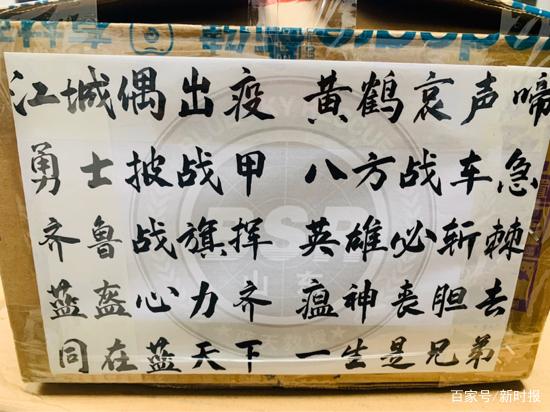 江城偶出疫 黄鹤哀声啼
勇士披战甲 八方战车急
齐鲁战旗挥 英雄必斩棘
蓝盔心力齐 瘟神丧胆去
同在蓝天下 一生是兄弟
BSR
山东
百家号/新时报